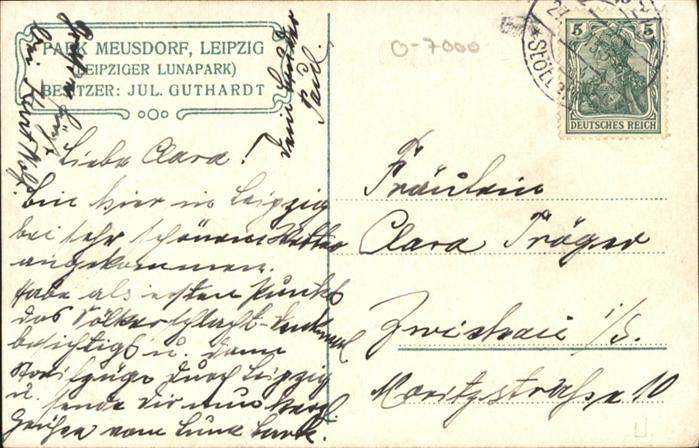 PARK MEUSDORF, LEIPZIG
(LEIPZIGER LUNAPARK)
BESITZER: JUL. GUTHARDT
Liebe Clara!
bin hier in Leipzig
bei sehr schönem Wetter
angekommen.
Habe als ersten Punkt
das Völkerschlacht-Denkmal
besichtigt u. dann
durch Leipzig
u. sende dir nun herzl.
Grüße vom Luna Park.
Dein
Paul.
0-7000
5 5
DEUTSCHES REICH
Fräulein
Clara Träger
Zwickau i/S.
Moritzstraße 10